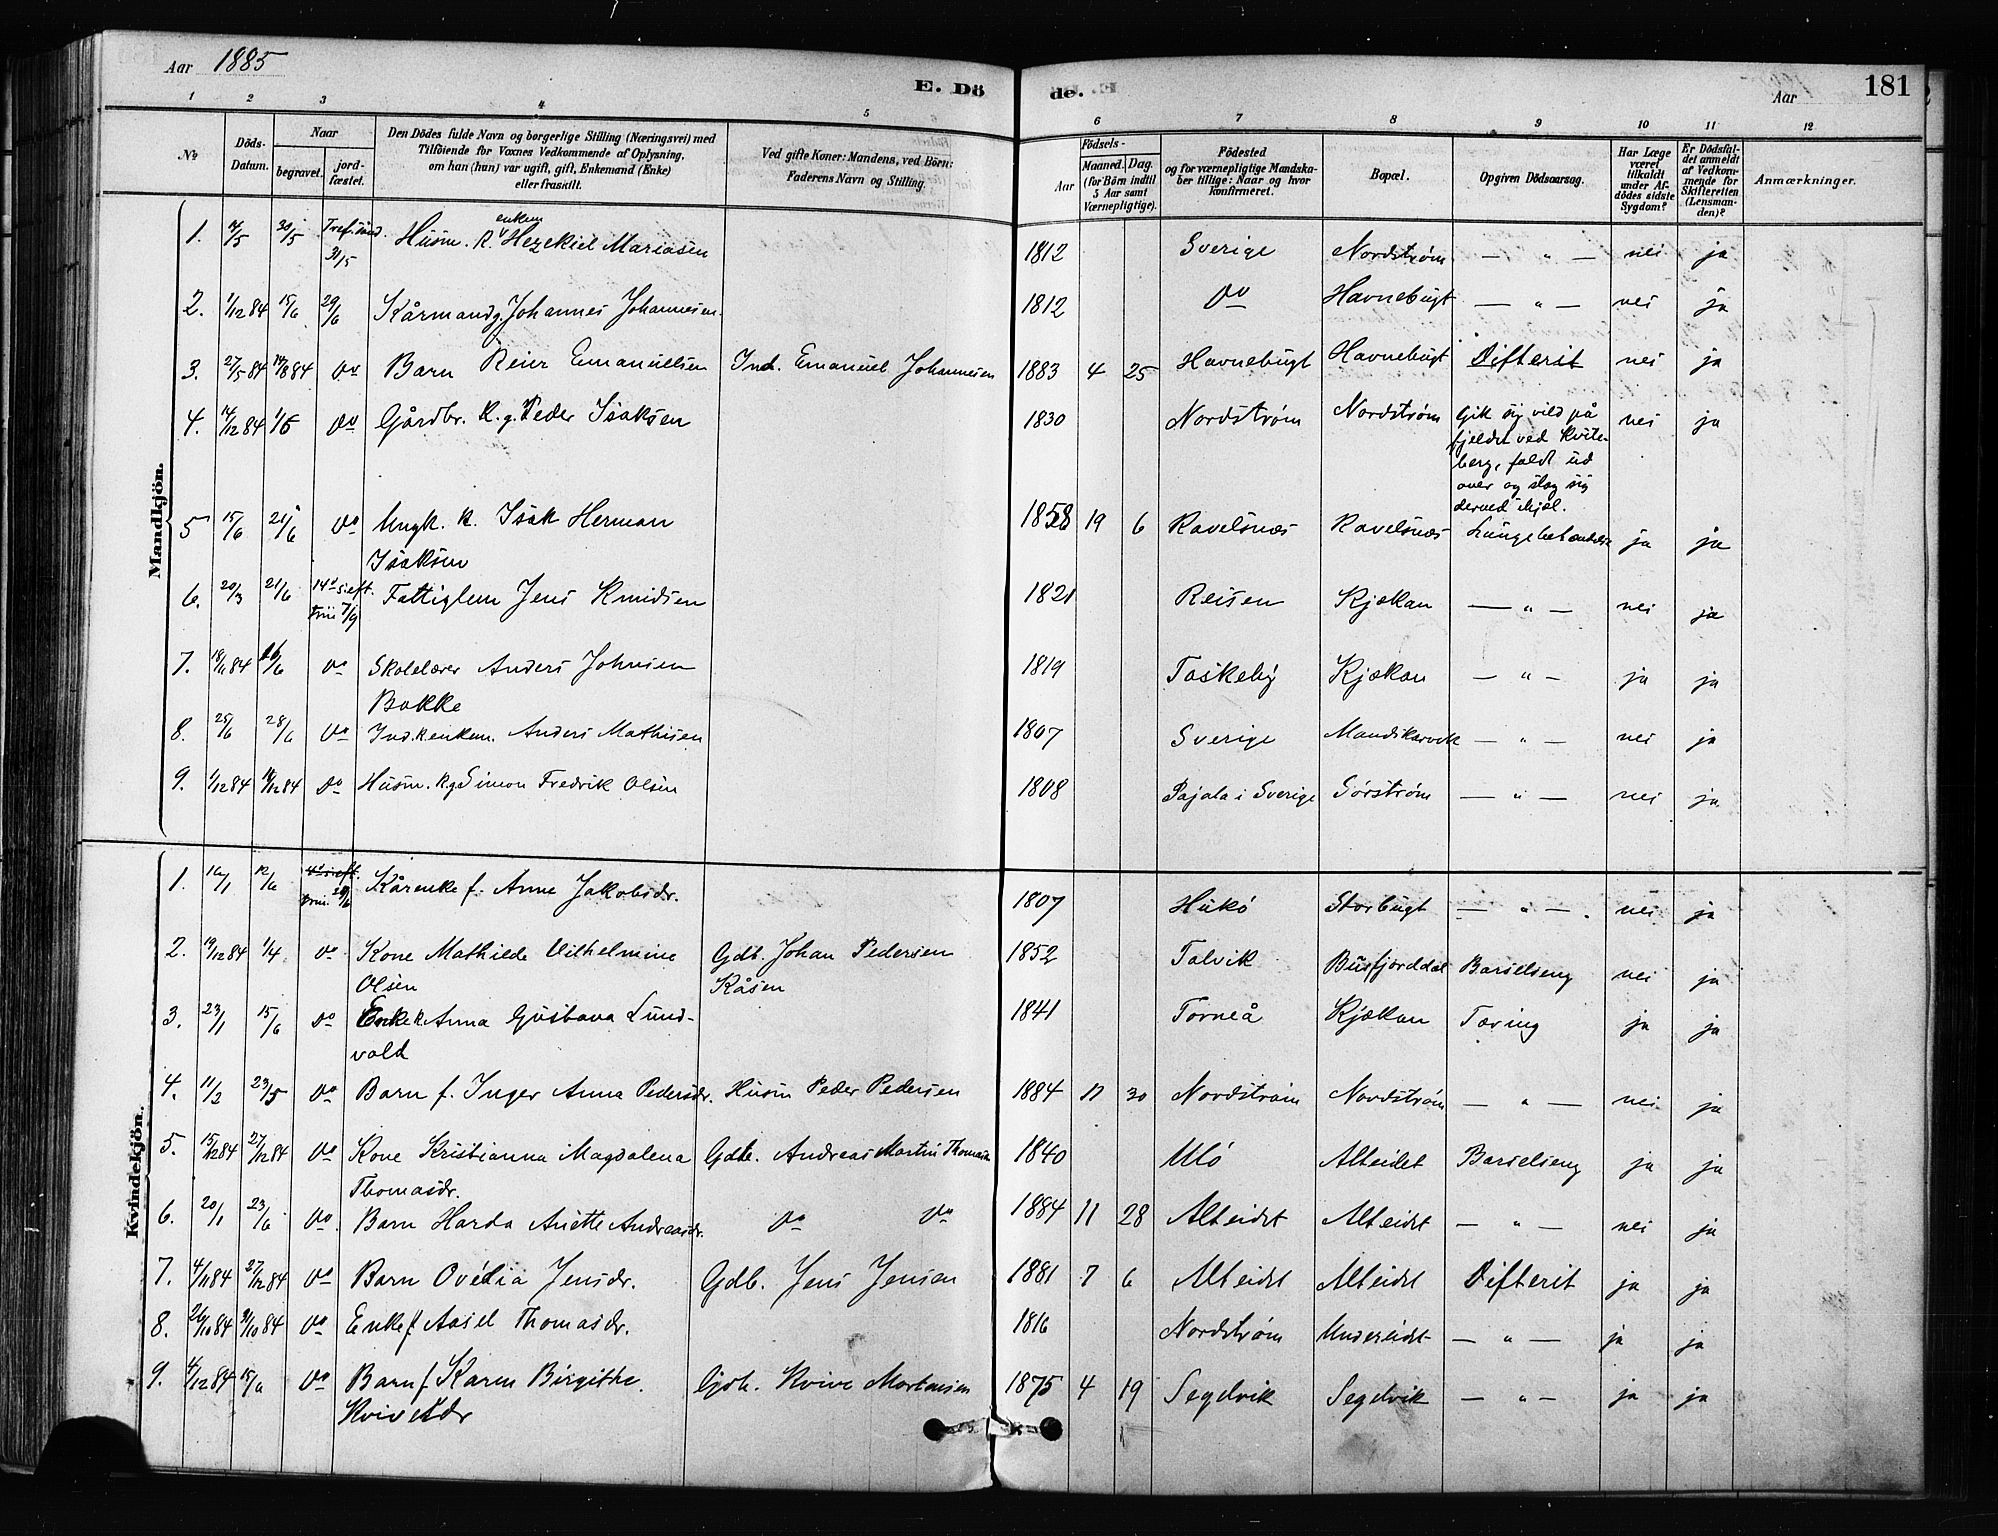 Aar 1885
E. Dö
de.
Aar
181
1 2 3 4 5 6 7 8 9 10 11 12
No
Döds-
Datum.
Naar
begravet.
jord-
fæstet.
Den Dödes fulde Navn og borgerlige Stilling (Næringsvei) med
Tilföiende for Voxnes Vedkommende af Oplysning,
om han (hun) var ugift, gift, Enkemand (Enke)
eller fraskilt.
Ved gifte Koner: Mandens, ved Börn:
Faderens Navn og Stilling.
Födsels-
Aar
Maaned. Dag.
(for Börn indtil
5 Aar samt
Værnepligtige).
Födested
og for værnepligtige Mandska-
ber tillige: Naar og hvor
konfirmeret.
Bopæl.
Opgiven Dödsaarsag.
Har Læge
været
tilkaldt
under Af-
dödes sidste
Sygdom?
Er Dödsfal-
det anmeldt
af Vedkom-
mende for
Skifteretten
(Lensman-
den)?
Anmærkninger.
Mandkjön.
1. 14/5 30/5 Tref. sönd. 31/5 Husm. k. enkem Hezekiel Mariasen 1812 Sverige Nordstrøm — " — nei ja
2. 1/12 84 15/6 29/6 Kårmand g. Johannes Johannesen 1812 do Havnebugt — " — nei ja
3. 27/5 84 14/8 84 do Barn Reier Emanuelsen Ind. Emanuel Johannesen 1883 4 25 Havnebugt Havnebugt Difterit nei ja
4. 14/12 84 1/5 do Gårdbr. k. g. Peder Isaksen 1830 Nordstrøm Nordstrøm Gik sig vild på
fjeldet ved Kvite-
berg, faldt ud
over og slog sig
derved ihjel.
nei ja
5 15/6 21/6 do Ungk. k. Isak Herman
Isaksen
1858 19 6 Ravelsnæs Ravelsnæs Lungebetændelse ja ja
6. 20/3 21/6 14d s. eft. Trin 7/9 Fattiglem Jens Knudsen 1821 Reisen Kjækan — " — nei ja
7. 18/11 84 /6 do Skolelærer Anders Johnsen
Bakke
1819 Taskeby Kjækan — " — ja ja
8. 25/6 28/6 do Ind. k. enkem. Anders Mathisen 1807 Sverige Mandskarvik — " — nei ja
9. 1/12 84 14/12 84 do Husm. k g Simon Fredrik Olsen 1808 Pajala i Sverige Sörstrøm — " — nei ja
Kvindekjön.
1. 16/1 12/6 4d s. eft. Trin. 28/6 Kårenke f. Anne Jakobsdr. 1807 Hukö Storbugt — " — nei ja
2. 19/12 84 1/4 do Kone Mathilde Vilhelmine
Olsen
Gdb. Johan Pedersen
Kåsen
1852 Talvik Busfjorddal Barselseng nei ja
3. 23/1 15/6 do Enke k Anna Gustava Lund-
vald
1841 Torneå Kjækan Tæring ja ja
4. 11/2 23/5 do Barn f. Inger Anna Pedersdr. Husm Peder Pedersen 1884 11 30 Nordstrøm Nordstrøm — " — nei ja
5. 15/12 84 27/12 84 do Kone Kristianna Magdalena
Thomasdr.
Gdb. Andreas Martin Thomasen 1840 Ulö Alteidet Barselseng ja ja
6. 20/1 23/6 do. Barn Harda Anette Andreasdr. do do 1884 11 28 Alteidet Alteidet — " — nei ja
7. 4/11 84 27/12 84 do Barn Ovédia Jensdr. Gdb. Jens Jensen 1881 7 6 Alteidet Alteidet Difterit ja ja
8. 26/10 84 31/10 84 do Enke f Aasel Thomasdr. 1816 Nordstrøm Undereidet — " — ja ja
9. 4/12 84 15/6 do Barn f Karen Birgithe
Kvivesdr
Gdb. Kvive Mortensen 1875 4 19 Segelvik Segelvik — " — ja ja